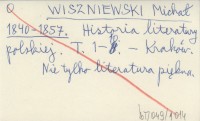 Q WISZNIEWSKI Michał
1840-1857. Historia literatury
polskiej. T. 1-8. – Kraków.
Nie tylko literatura piękna.